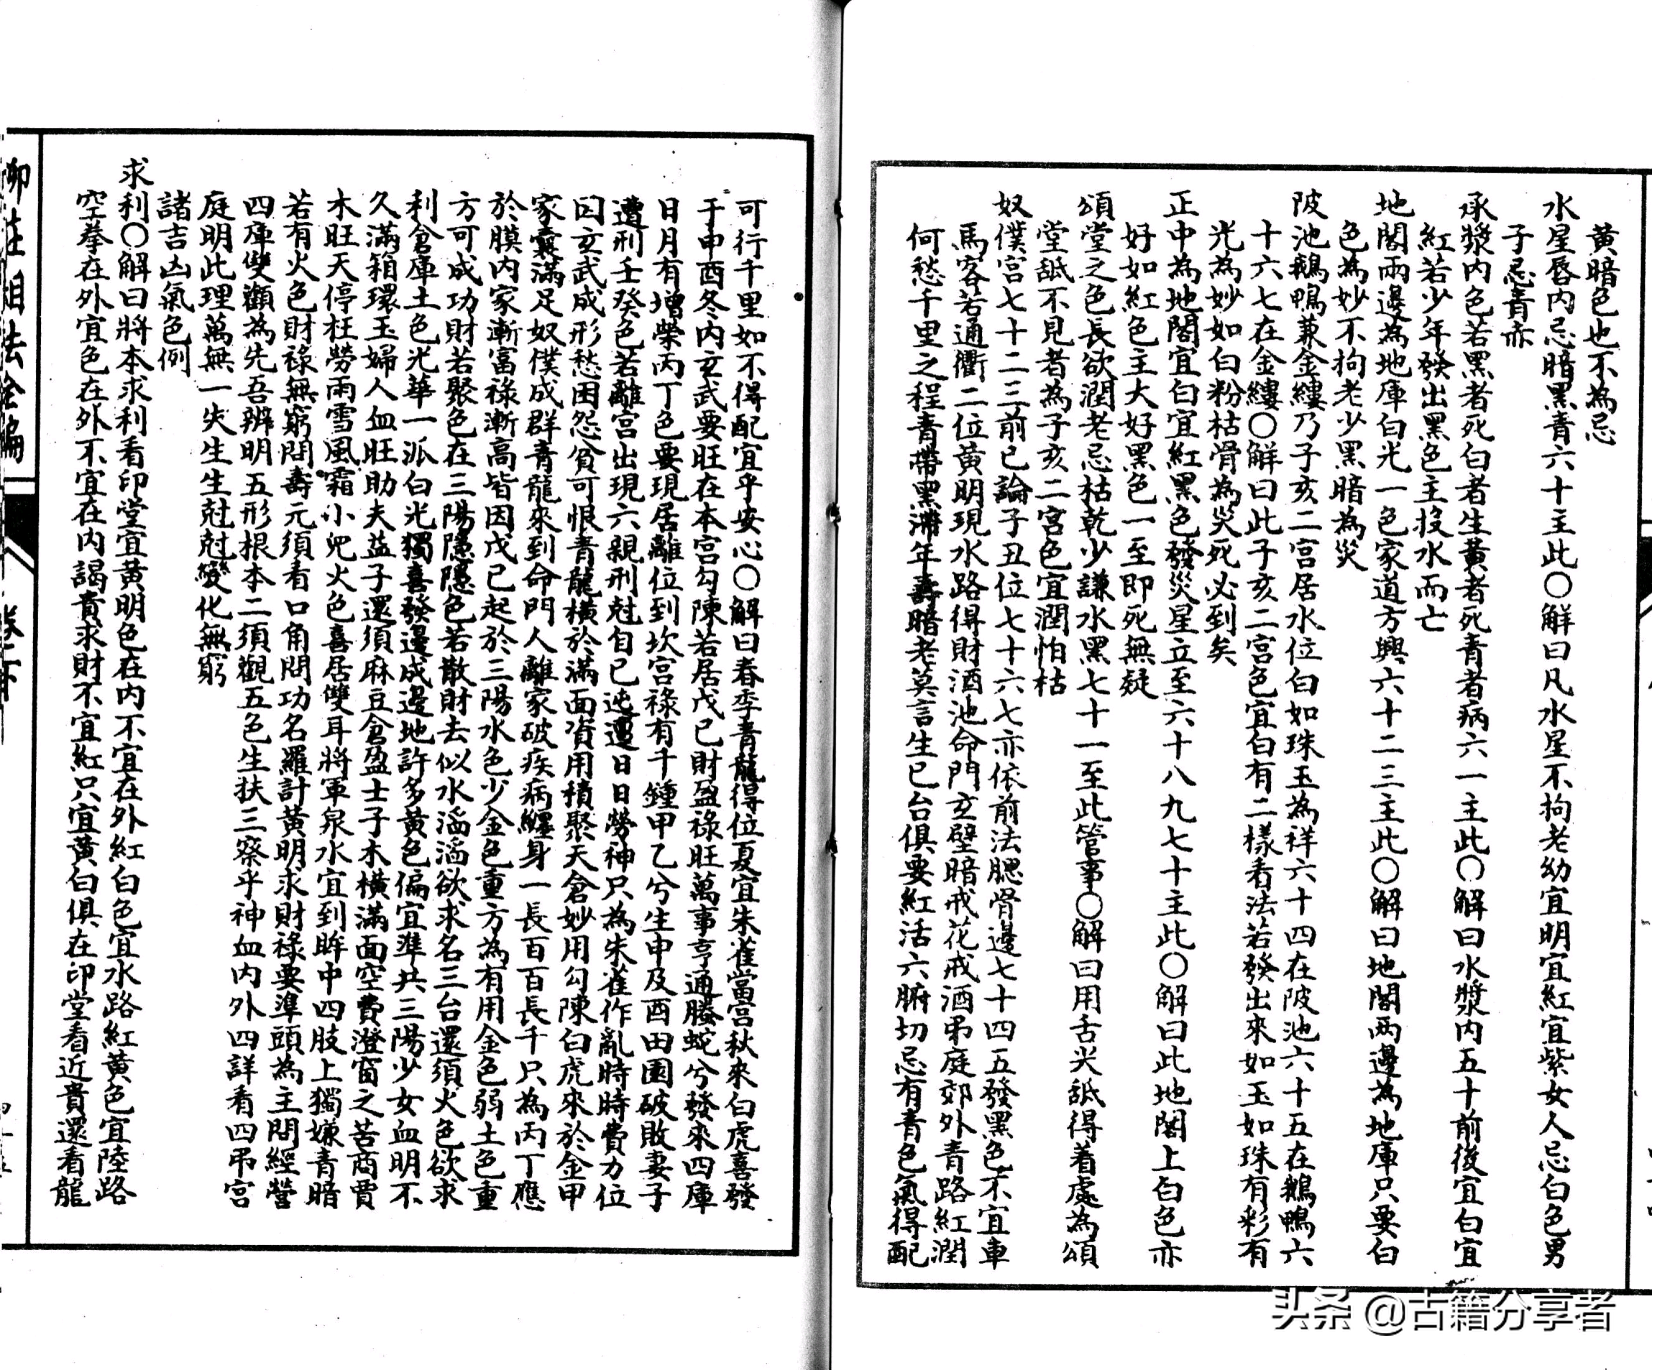 黃暗色也不為忌
水星唇内忌暗黑青六十主此〇解曰凡水星不拘老幼宜明宜紅宜紫女人忌白色男
子忌青亦
承漿内色若黑者死白者生黃者死青者病六一主此〇解曰水漿内五十前後宜白宜
紅若少年發出黑色主投水而亡
地閣兩邊為地庫白光一色家道方興六十二三主此〇解曰地閣兩邊為地庫只要白
色為妙不拘老少黑暗為災
陂池鵝鴨兼金縷乃子亥二宮居水位白如珠玉為祥六十四在陂池六十五在鵝鴨六
十六七在金縷〇解曰此子亥二宮色宜白有二樣看法若發出來如玉如珠有彩有
光為妙如白粉枯骨為災死必到矣
正中為地閣宜白宜紅黑色發災星立至六十八九七十主此〇解曰此地閣上白色亦
好如紅色主大好黑色一至即死無疑
頌堂之色長欲潤老忌枯乾少謙水黑七十一至此管事〇解曰用舌尖舐得着處為頌
堂舐不見者為子亥二宮色宜潤怕枯
奴僕宮七十二三前已論子丑位七十六七亦依前法腮骨邊七十四五發黑色不宜車
馬客若通衢二位黃明現水路得財酒池命門玄壁暗戒花戒酒吊庭郊外青路紅潤
何愁千里之程青帶黑滯年壽暗老莫言生已台俱要紅活六腑切忌有青色氣得配
可行千里如不得配宜乎安心〇解曰春季青龍得位夏宜朱雀當宮秋來白虎喜發
于申酉冬内玄武要旺在本宮勾陳若居戊已財盈祿旺萬事亨通螣蛇兮發來四庫
日月有增榮丙丁色要現居離位到坎宮祿有千鍾甲乙兮生申及酉田園破敗妻子
遭刑壬癸色若離宮出現六親刑尅自已迍邅日日勞神只為朱雀作亂時時費力位
因玄武成形愁困怨貧可恨青龍橫於滿面資用積聚天倉妙用勾陳白虎來於金甲
家囊滿足奴僕成群青龍來到命門人離家破疾病纏身一長百百長千只為丙丁應
於膜内家漸富祿漸高皆因戊已起於三陽水色少金色重方為有用金色弱土色重
方可成功財若聚色在三陽隱隱色若散財去似水滔滔欲求名三台還須火色欲求
利倉庫土色光華一派白光獨喜發邊成邊地許多黃色偏宜準共三陽少女血明不
久滿箱環玉婦人血旺助夫益子還須麻豆倉盈士子木橫滿面空費澄窗之苦商賈
木旺天停枉勞雨雪風霜小兒火色喜居雙耳將軍泉水宜到眸中四肢上獨嫌青暗
若有火色財祿無窮問壽元須看口角問功名羅計黃明求財祿要準頭為主問經營
四庫雙顴為先吾辨明五形根本二須觀五色生扶三察乎神血内外四詳看四吊宮
庭明此理萬無一失生生尅尅變化無窮
諸吉凶氣色例
求利〇解曰將本求利看印堂宜黃明色在内不宜在外紅白色宜水路紅黃色宜陸路
空拳在外宜色在外不宜在内謁貴求財不宜紅只宜黃白俱在印堂看近貴還看龍
柳莊相法全編
頭条 @古籍分享者